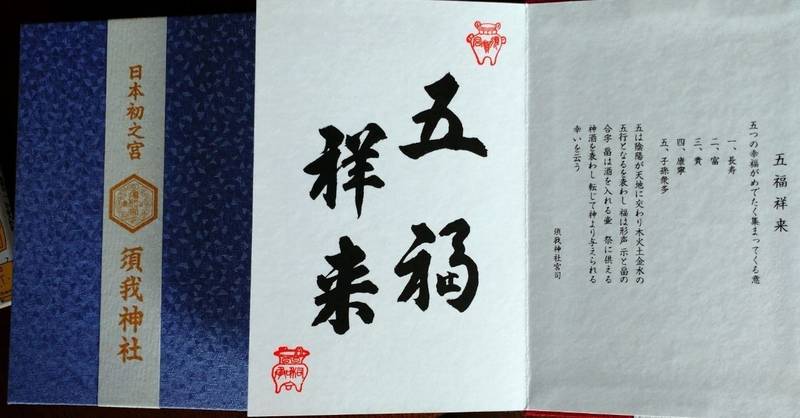 日本初之宮
須我神社
五福
祥来
五福祥来
五つの幸福がめでたく集まってくる意
一、長寿
二、富
三、貴
四、康寧
五、子孫衆多
五は陰陽が天地に交わり木火土金水の
五行となるを表わし 福は形声 示と畐の
合字 畐は酒を入れる壷 祭に供える
神酒を表わし 転じて神より与えられる
幸いを云う
須我神社宮司